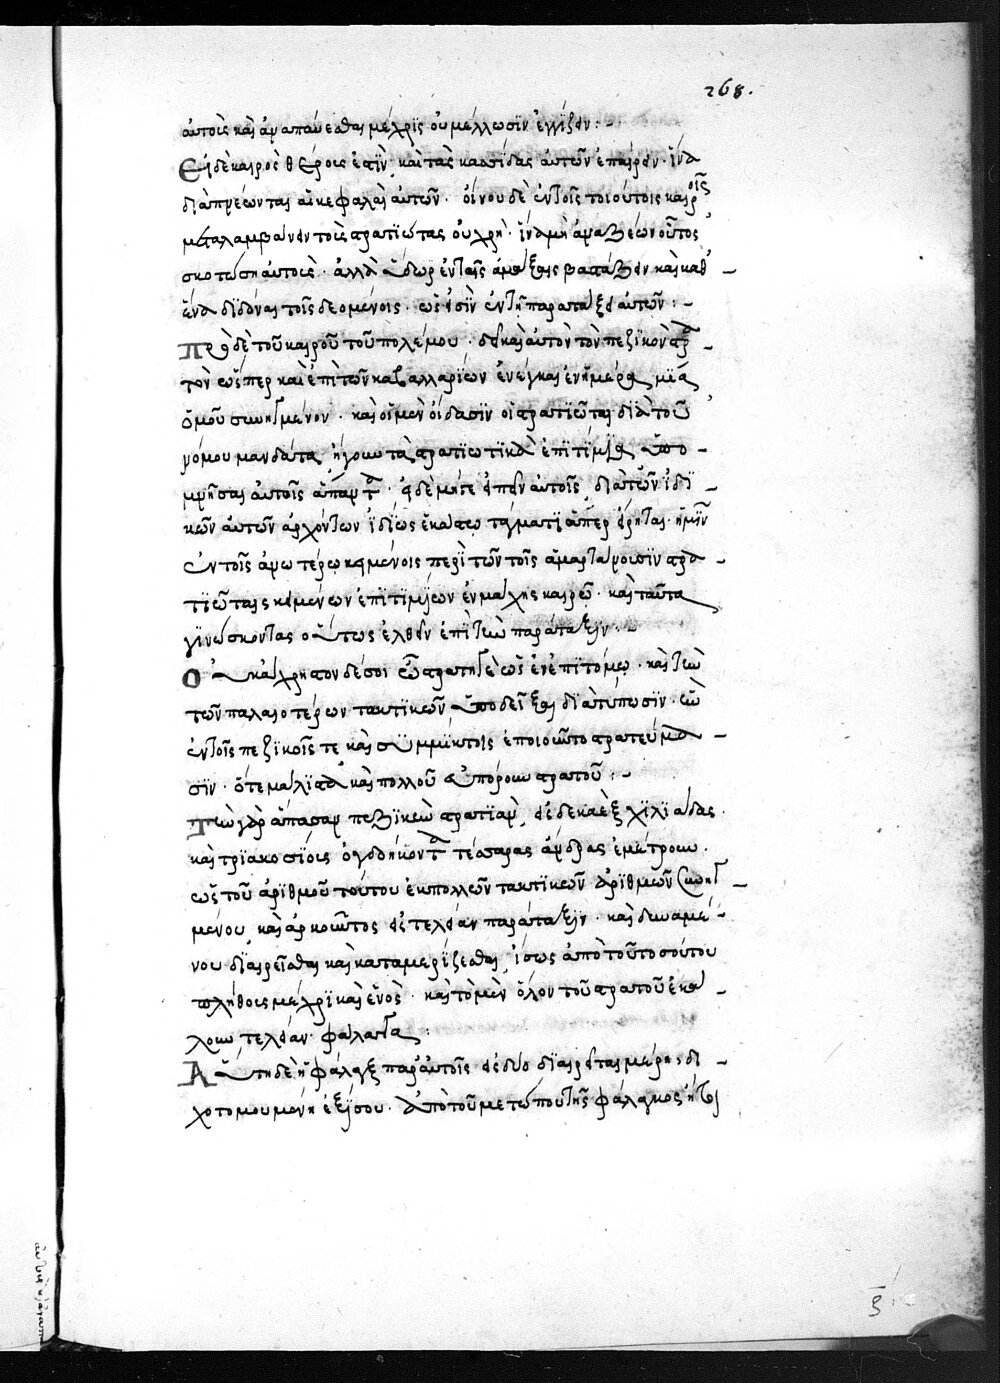 268.
αὐτοῖς καὶ ἀναπαύεσθαι μέχρις οὗ μέλλωσιν ἐγγίζειν :~
Εἰ δὲ καιρὸς θέρους ἐστὶν, καὶ τὰς κασσίδας αὐτῶν ἐπαίρειν. ἵνα
διαπνέωνται αἱ κεφαλαὶ αὐτῶν. οἴνου δὲ ἐν τοῖς τοιούτοις καιροῖς
μεταλαμβάνειν τοὺς στρατιώτας οὐ χρή. ἵνα μὴ ἀναζέων οὗτος
σκοτώσῃ αὐτούς. ἀλλὰ ὕδωρ ἐν ταῖς ἁμάξαις βαστάζειν καὶ καθ'
ἕνα διδόναι τοῖς δεομένοις. ὡς εἰσὶν ἐν τῇ παρατάξει αὐτῶν :~
Πρὸ δὲ τοῦ καιροῦ τοῦ πολέμου. δεῖ καὶ αὐτὸν τὸν πεζικὸν στρα
τὸν ὥσπερ καὶ ἐπὶ τῶν καβαλλαρίων ἐνέγκαι ἐν ἡμέρᾳ μιᾷ
ὁμοῦ συνηγμένον. καὶ οἱ μὲν οἴδασιν οἱ στρατιῶται διὰ τοῦ
νόμου μανδάτα, ἤγουν τὰ στρατιωτικὰ ἐπιτίμια ὑπο
μνῆσαι αὐτοῖς ἅπαντα. εἰ δὲ μήγε εἰπεῖν αὐτοῖς, διὰ τῶν ἰδι
κῶν αὐτῶν ἀρχόντων ἰδίως ἑκάστῳ τάγματι ἅπερ εἴρηται ἡμῖν
ἐν τοῖς ἀνωτέρω κειμένοις περὶ τῶν τοῖς ἁμαρτάνουσιν στρα
τιώταις κειμένων ἐπιτιμίων ἐν μάχης καιρῷ. καὶ ταῦτα
γινώσκοντας οὕτως ἐλθεῖν ἐπὶ τὴν παράταξιν :~
Οὐκ ἄχρηστον δέ σοι ὦ στρατηγὲ ὡς ἐν ἐπιτόμῳ. καὶ τὴν
τῶν παλαιοτέρων τακτικῶν ὑποδεῖξαι διατύπωσιν. ἣν
ἐν τοῖς πεζικοῖς τε καὶ συμμίκτοις ἐποιοῦντο στρατεύμα
σιν. ὅτε μάλιστα καὶ πολλοῦ εὐπόρουν στρατοῦ :~
Τὴν γὰρ ἅπασαν πεζικὴν στρατιὰν, εἰς δεκαὲξ χιλιάδας.
καὶ τριακοσίους ὀγδοήκοντα τέσσαρας ἄνδρας ἐμέτρουν.
ὡς τοῦ ἀριθμοῦ τούτου ἐκ πολλῶν τακτικῶν ἀριθμῶν συνηγ
μένου, καὶ ἀρκοῦντος εἰς τελείαν παράταξιν. καὶ δυναμέ
νου διαιρεῖσθαι καὶ καταμερίζεσθαι, ἴσως ἀπὸ τοῦ τοσούτου
πλήθους μέχρι καὶ ἑνός. καὶ τὸ μὲν ὅλον τοῦ στρατοῦ ἐκά
λουν, τελείαν φάλαγγα :
Αὕτη δὲ ἡ φάλαγξ παρ' αὐτοῖς εἰς δύο διαιρεῖται μέρη, δι
χοτομουμένη ἐξίσου. ἀπὸ τοῦ μετώπου τῆς φάλαγγος ἤτοι